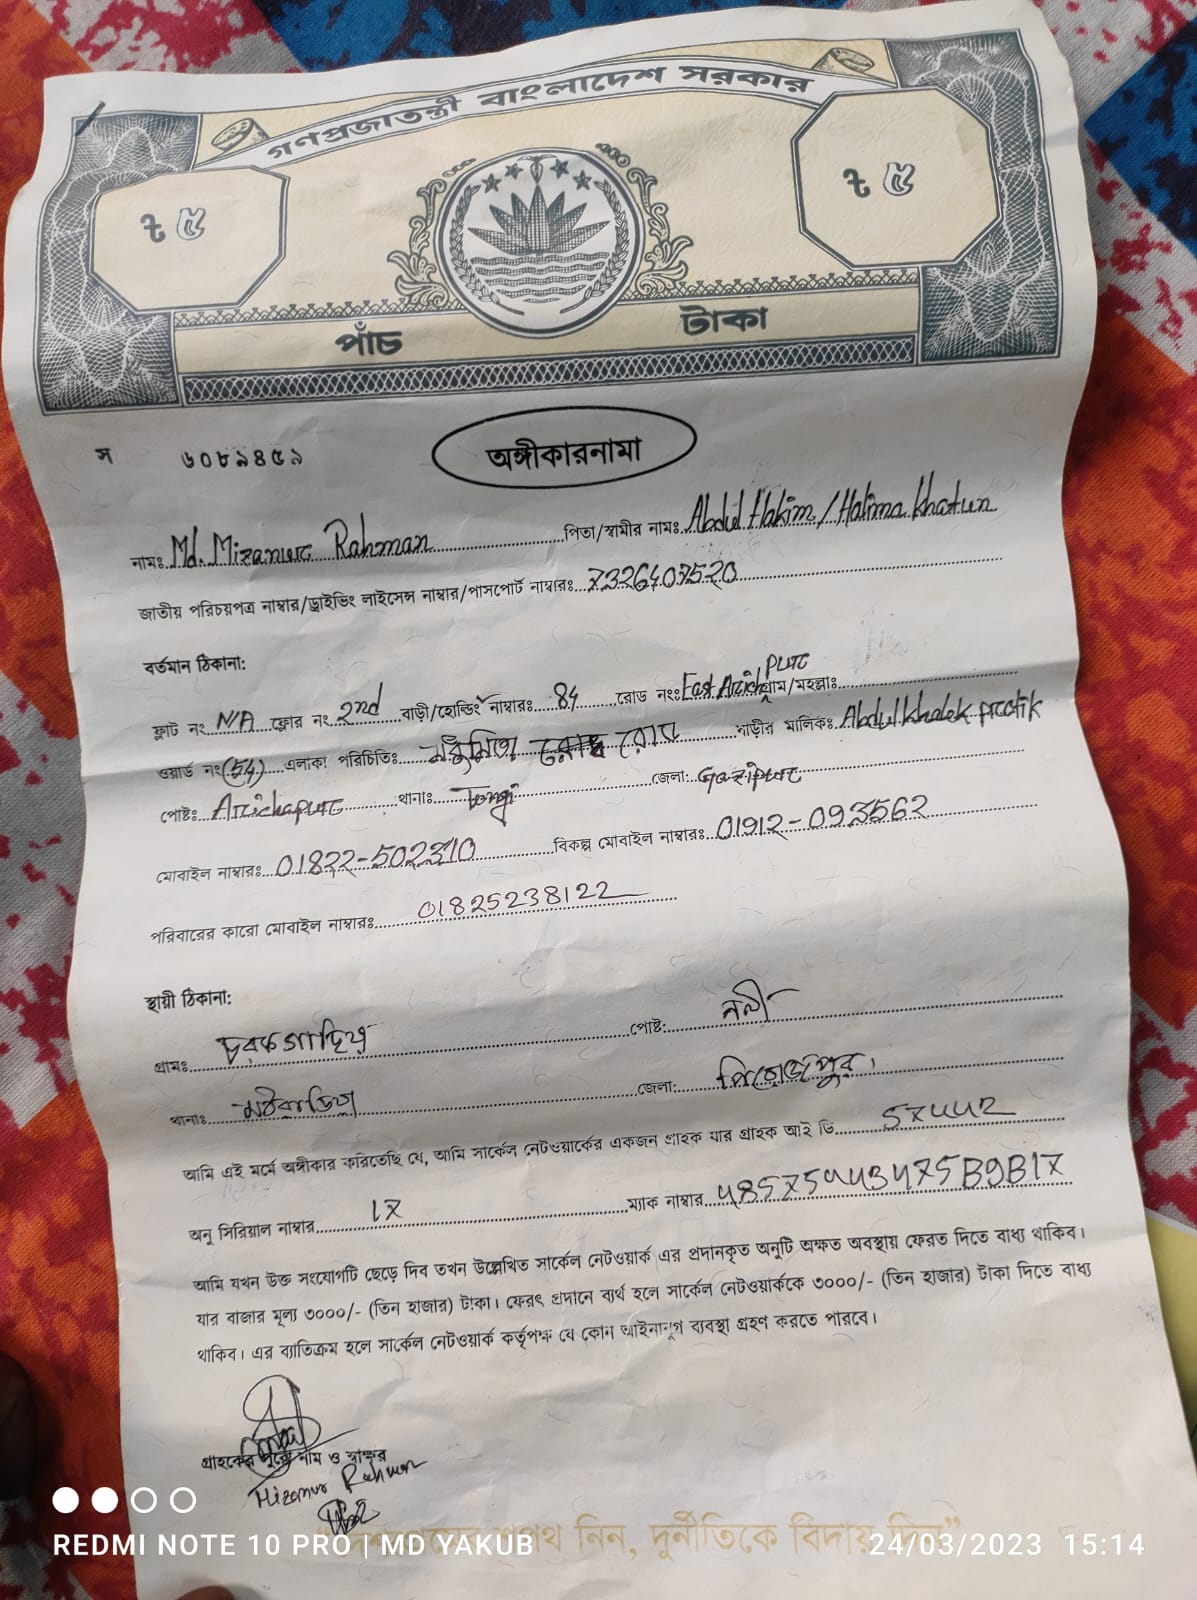 গণপ্রজাতন্ত্রী বাংলাদেশ সরকার
৳ ৫
৳ ৫
পাঁচ টাকা
স ৬০৮৯৪৫৯
অঙ্গীকারনামা
নামঃ Md. Mizanur Rahman পিতা/স্বামীর নামঃ Abdul Hakim / Halima khatun
জাতীয় পরিচয়পত্র নাম্বার/ড্রাইভিং লাইসেন্স নাম্বার/পাসপোর্ট নাম্বারঃ 7326407520
বর্তমান ঠিকানা:
ফ্লাট নং N/A ফ্লোর নং 2nd বাড়ী/হোল্ডিং নাম্বারঃ 84 রোড নংঃ East Arichpur গ্রাম/মহল্লাঃ
ওয়ার্ড নং (54) এলাকা পরিচিতিঃ রোড বাড়ীর মালিকঃ Abdul khalek protik
পোষ্টঃ Arichapur থানাঃ Tongi জেলা: Gazipur
মোবাইল নাম্বারঃ 01822-502310 বিকল্প মোবাইল নাম্বারঃ 01912-093562
পরিবারের কারো মোবাইল নাম্বারঃ 01825238122
স্থায়ী ঠিকানা:
গ্রামঃ পোষ্ট: নলী
থানাঃ মঠবাড়িয়া জেলা: পিরোজপুর।
আমি এই মর্মে অঙ্গীকার করিতেছি যে, আমি সার্কেল নেটওয়ার্কের একজন গ্রাহক যার গ্রাহক আই ডি
অনু সিরিয়াল নাম্বার 17 ম্যাক নাম্বার
আমি যখন উক্ত সংযোগটি ছেড়ে দিব তখন উল্লেখিত সার্কেল নেটওয়ার্ক এর প্রদানকৃত অনুটি অক্ষত অবস্থায় ফেরত দিতে বাধ্য থাকিব।
যার বাজার মূল্য ৩০০০/- (তিন হাজার) টাকা। ফেরৎ প্রদানে ব্যর্থ হলে সার্কেল নেটওয়ার্ককে ৩০০০/- (তিন হাজার) টাকা দিতে বাধ্য
থাকিব। এর ব্যাতিক্রম হলে সার্কেল নেটওয়ার্ক কর্তৃপক্ষ যে কোন আইনানুগ ব্যবস্থা গ্রহণ করতে পারবে।
গ্রাহকের পুরো নাম ও স্বাক্ষর
Mizanur Rahman
শপথ নিন, দুর্নীতিকে বিদায় দিন”
REDMI NOTE 10 PRO | MD YAKUB
24/03/2023 15:14